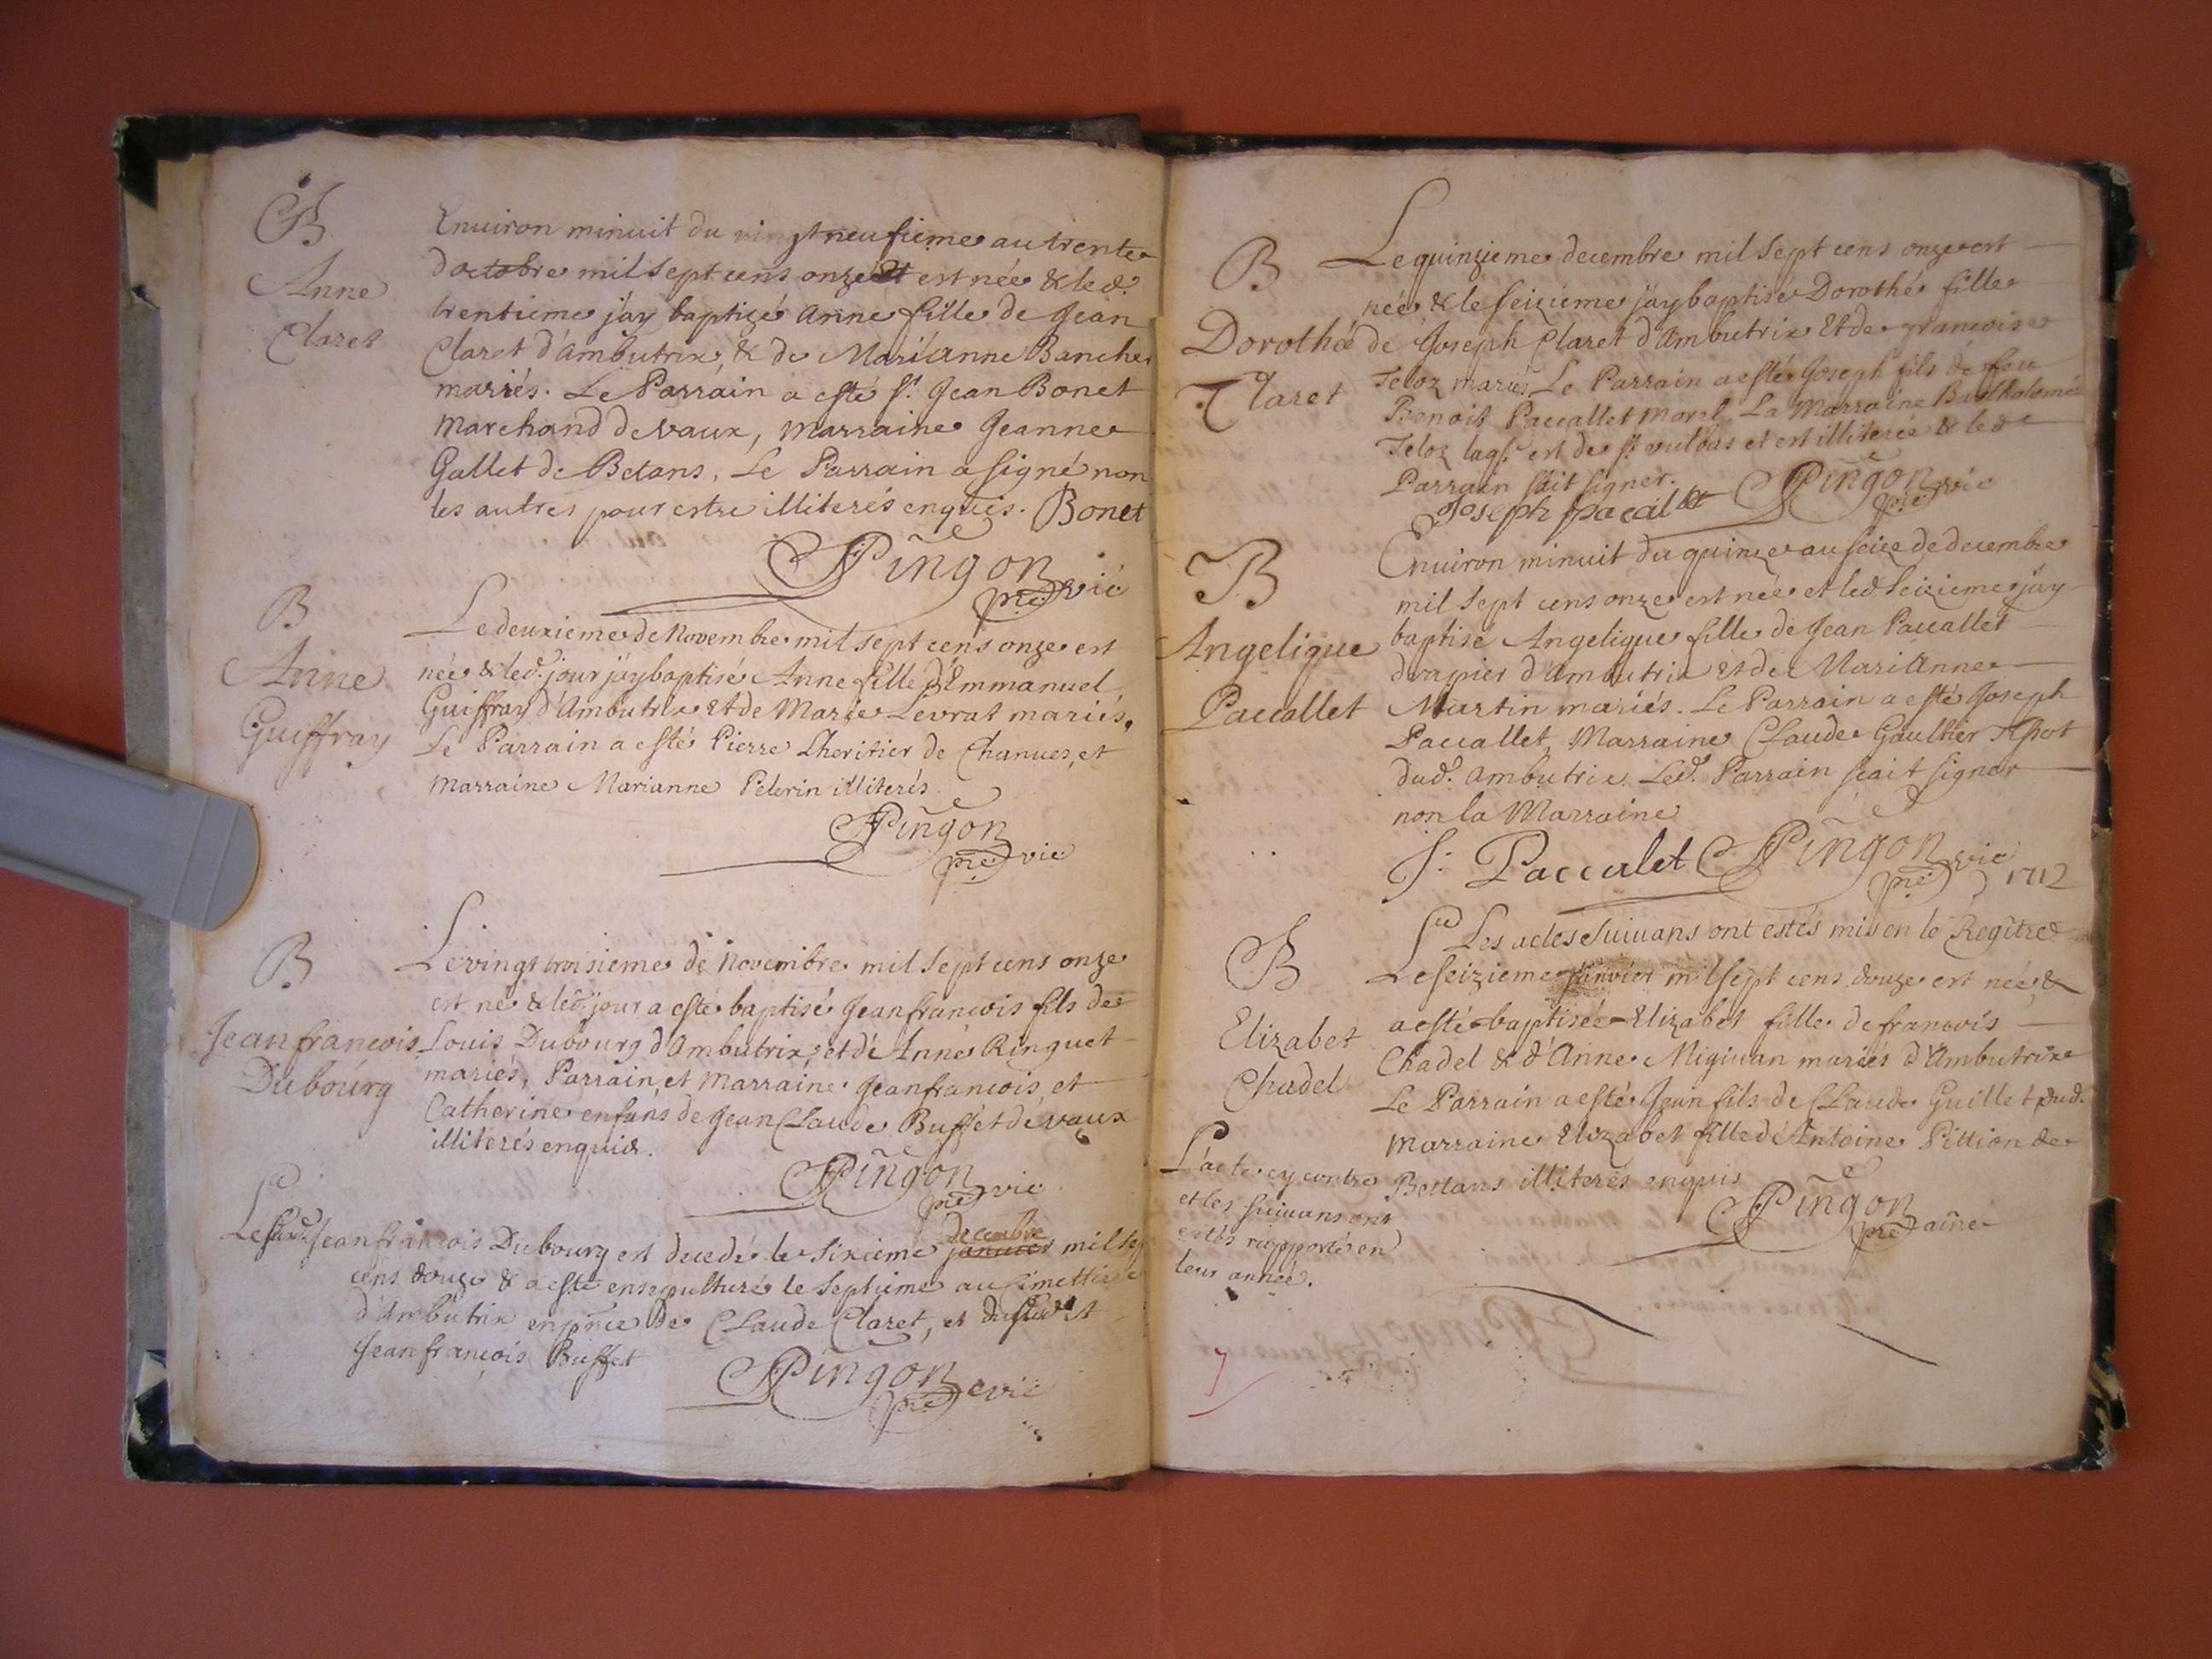 B
Anne
Claret
Enuiron minuit du vingtneufieme au trente
doctobre mil sept cens onze est née & led.
trentieme jáy baptizé Anne fille de Jean
Claret d'Ambutrix, & de Marianne Bancher
mariés. Le Parrain a esté sr. Jean Bonet
Marchand de vaux, Marraine Jeanne
Gallet de Betans. Le Parrain a signé non
les autres pour estre illiterés enquis. Bonet
Pingon
pre vic
B
Anne
Guiffray
Le deuxieme de Novembre mil sept cens onze est
née & led. jour jáy baptisé Anne fille d'Emmanuel
Guiffray d'Ambutrix et de Marie Levrat mariés.
Le Parrain a esté Pierre Lheritier de Chanues, et
marraine Marianne Pelerin illiterés
Pingon
pre vic
B
Jeanfrancois
Dubourg
Le vingt troisieme de Novembre mil sept cens onze
est né & led. jour a esté baptisé Jeanfrancois fils de
Louis Dubourg d'Ambutrix, et d'Anne Ringuet
mariés, Parrain, et Marraine Jeanfrancois, et
Catherine enfans de Jean Claude Buffet de vaux
illiterés enquis.
Pingon
pre vic
decembre
Le Jeanfrancois Dubourg est decedé le sixieme januier mil sep
cens douze & a esté ensepulturé le septieme au cimettiere
d'Ambutrix en pnce de Claude Claret, et
Jeanfrancois Buffet
Pingon
pre vic
B
Dorothée
Claret
Le quinzieme decembre mil sept cens onze est
née & le seizieme jáy baptisé Dorothée fille
de Joseph Claret d'Ambutrix et de francoise
Teloz mariés. Le Parrain a esté Joseph fils de feu
Benoit Paccallet March. La Marraine Bartholomée
Teloz laqs. est de st. vulbas et est illiterée & led
Parrain sait signer.
Joseph pacallet Pingon
pre vic
B
Angelique
Paccallet
Enuiron minuit du quinze au seize de decembre
mil sept cens onze est née et led seizieme jáy
baptisé Angelique fille de Jean Paccallet
drapier d'Ambutrix et de Marianne
Martin mariés. Le Parrain a esté Joseph
Paccallet, Marraine Claude Gaultier
dud. Ambutrix. Led. Parrain scait signer
non la Marraine
J: Paccalet Pingon
pre vic
1712
Les actes suiuans ont estés mis en le Regître
B
Elizabet
Chadel
Le seizieme januier mil sept cens douze est née &
a esté baptisée Elizabet fille de francois
Chadel & d'Anne Migiuan mariés d'Ambutrix
Le Parrain a esté Jean fils de Claude Guillet dud.
Marraine Elizabet fille d'Antoine Pittion de
Bettans illiterés enquis
Pingon
pre aîné
L'acte cy contre
et les suiuans ont
estés rapporté en
leur année.